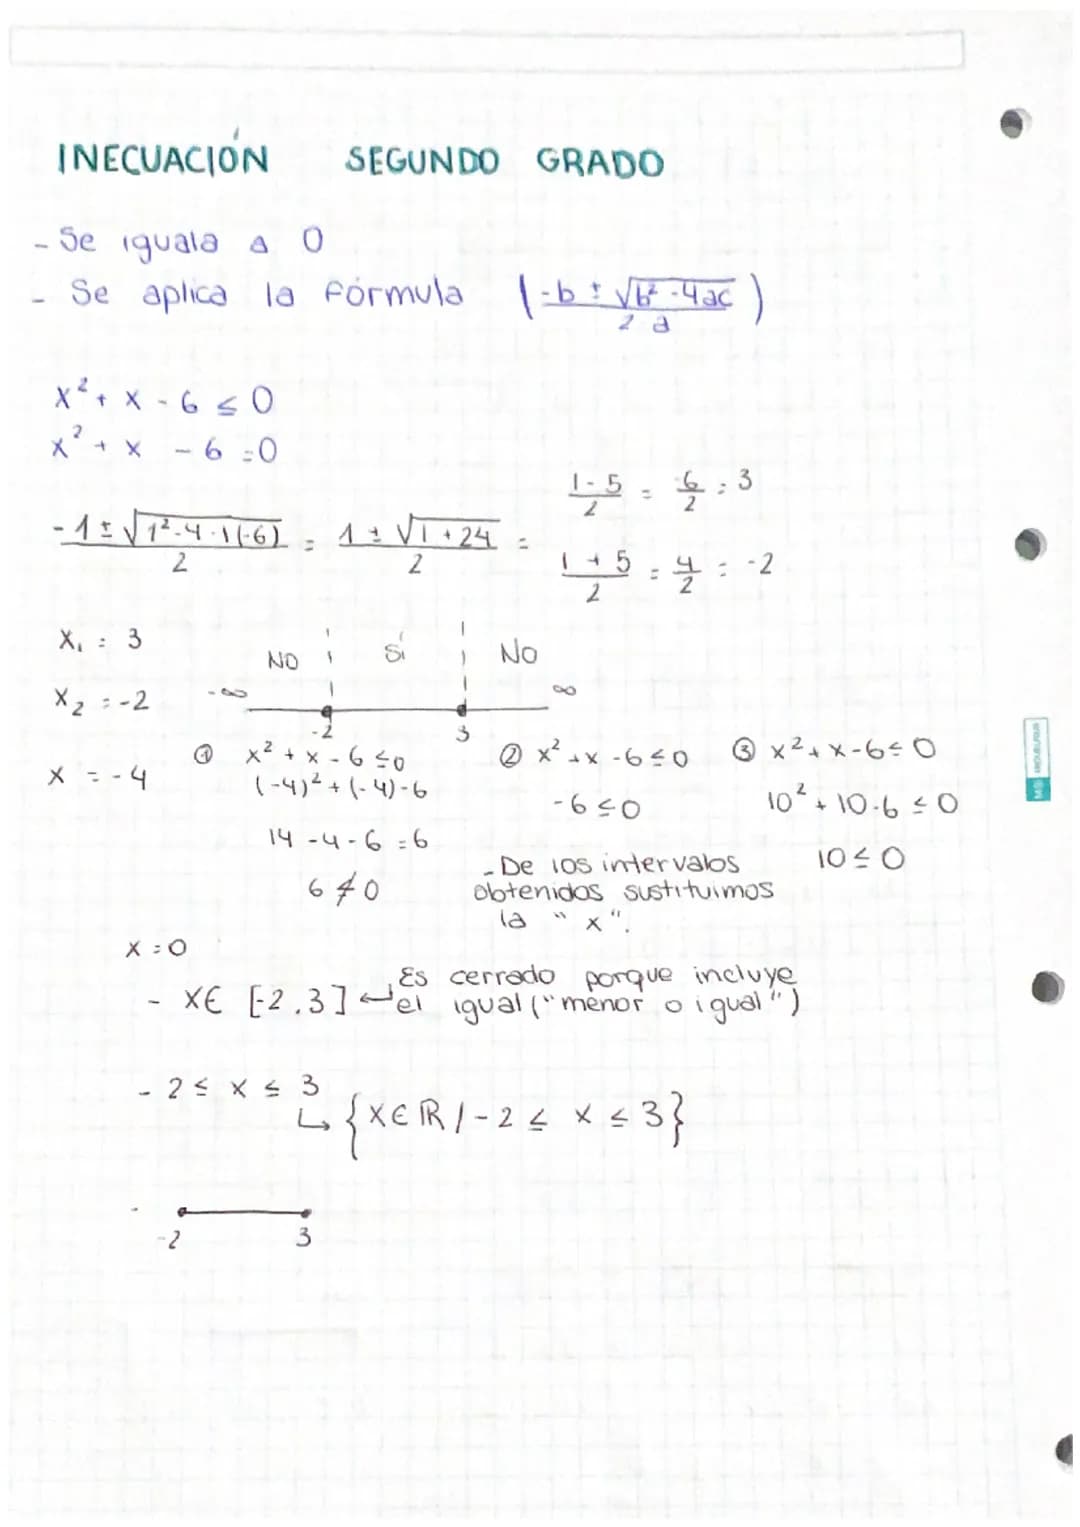 INECUACIÓN SEGUNDO GRADO
- Se iguala a 0
- Se aplica la fórmula (-b ± √b² -4ac / 2 a)
x² + x - 6 ≤ 0
x² + x - 6 = 0
-1 ± √1²-4·1(-6) / 2 = 1 ± √1+24 / 2 =
1-5 / 2 = -6 / 2 = 3
1+5 / 2 = 4 / 2 = -2
x₁ = 3
x₂ = -2
NO Sí NO
-∞ ∞
-2 3
x = -4
① x² + x - 6 ≤0
(-4)² + (-4) -6
14 -4 -6 =6
6 ≰ 0
② x² +x -6 ≤0
-6 ≤ 0
③ x² + x -6 ≤ 0
10² + 10 -6 ≤ 0
10 ≤ 0
- De los intervalos
obtenidos sustituimos
la "x".
x = 0
- x∈ [-2,3] ← Es cerrado porque incluye
el igual ("menor o igual")
- 2 ≤ x ≤ 3
↳ {x∈ℝ / -2 ≤ x ≤ 3}
-2 3
MS